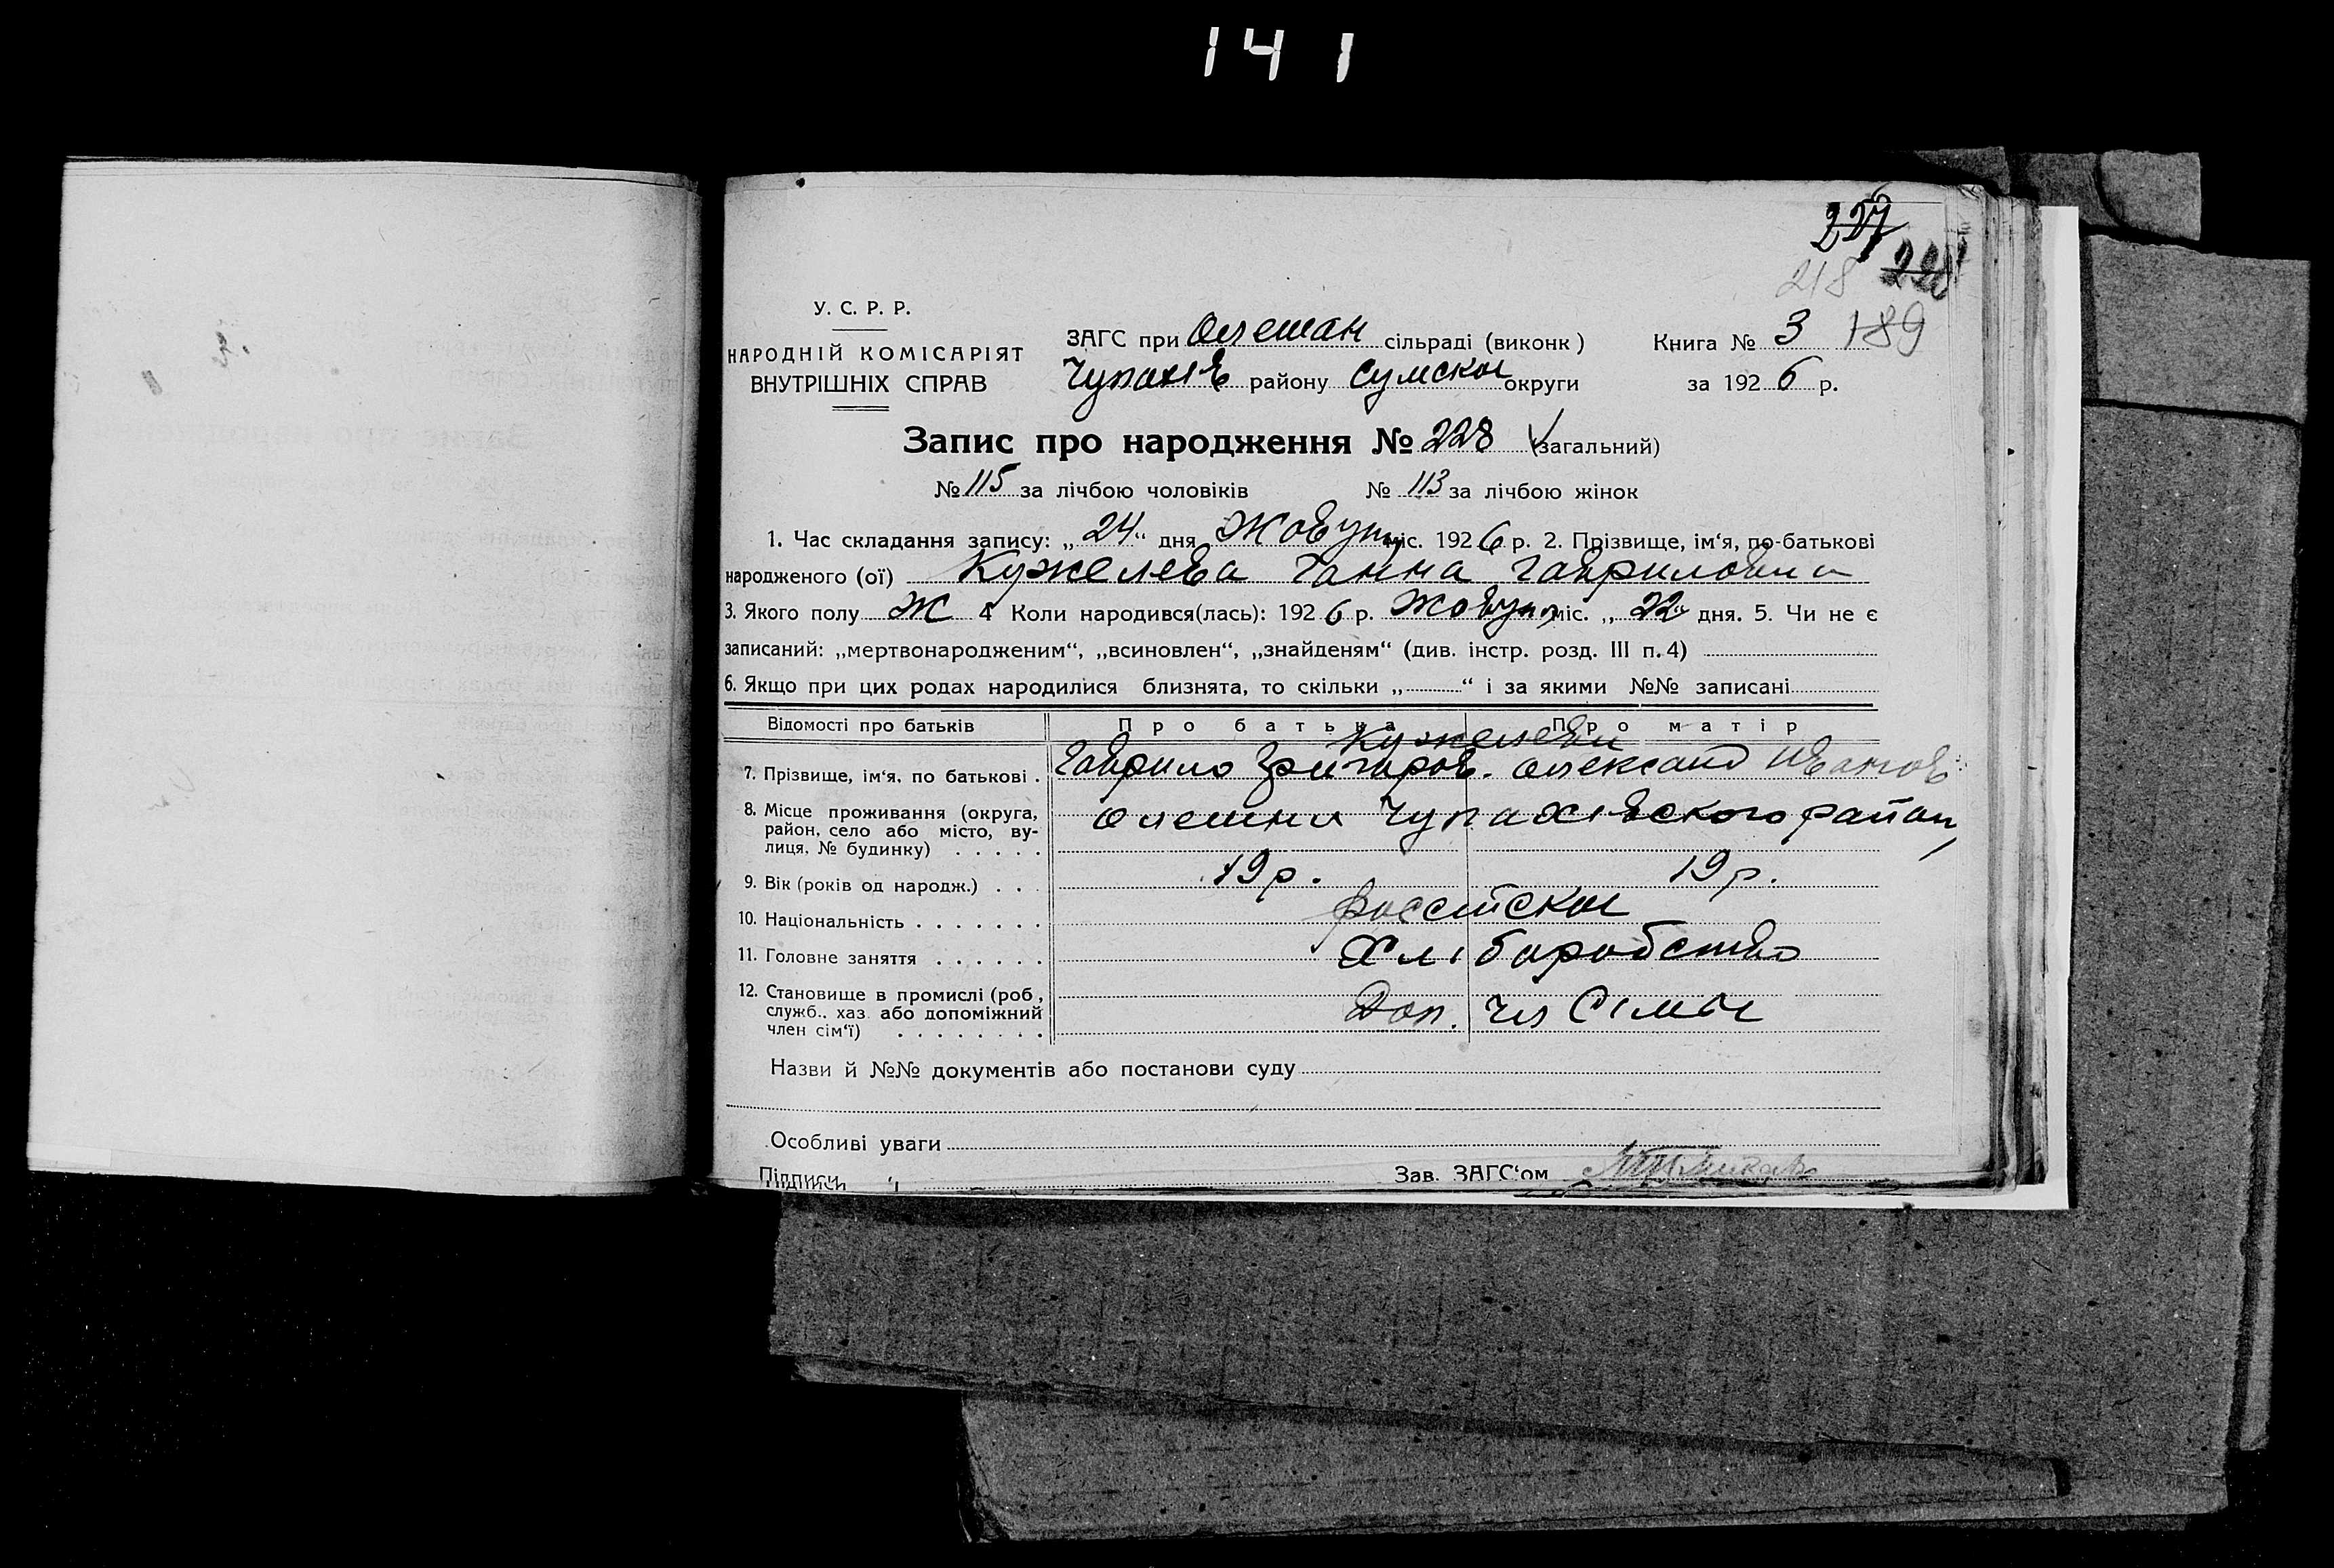 141
227
218 228
У. С. Р. Р.
НАРОДНІЙ КОМІСАРІЯТ
ВНУТРІШНІХ СПРАВ
ЗАГС при Олешан сільраді (виконк)
Чупахів району Сумскои округи
Книга № 3 189
за 1926 р.
Запис про народження № 228 (загальний)
№ 115 за лічбою чоловіків № 113 за лічбою жінок
1. Час складання запису: „24“ дня Жовтн міс. 1926 р. 2. Прізвище, ім‘я, по-батькові
народженого (ої) Кужелева Ганна Гавриловни
3. Якого полу Ж 4 Коли народився(лась): 1926 р. Жовтн міс. „22“ дня. 5. Чи не є
записаний: „мертвонародженим“, „всиновлен“, „знайденям“ (див. інстр. розд. III п. 4)
6. Якщо при цих родах народилися близнята, то скільки „ “ і за якими №№ записані
Відомості про батьків Про батька Про матір
Кужелеви
7. Прізвище, ім‘я, по батькові . Гаврило Григоров. Олександ Иванов
8. Місце проживання (округа,
район, село або місто, ву-
лиця, № будинку) . . . . . Олешни Чупахівского район
9. Вік (років од народж.) . . . 19 р. 19 р.
10. Національність . . . . . . . Россійскои
11. Головне заняття . . . . . . Хліборобство
12. Становище в промислі (роб,
служб., хаз. або допоміжний
член сім‘ї) . . . . . . . . Доп. Чл Сімьи
Назви й №№ документів або постанови суду
Особливі уваги
Підписи
Зав. ЗАГС‘ом